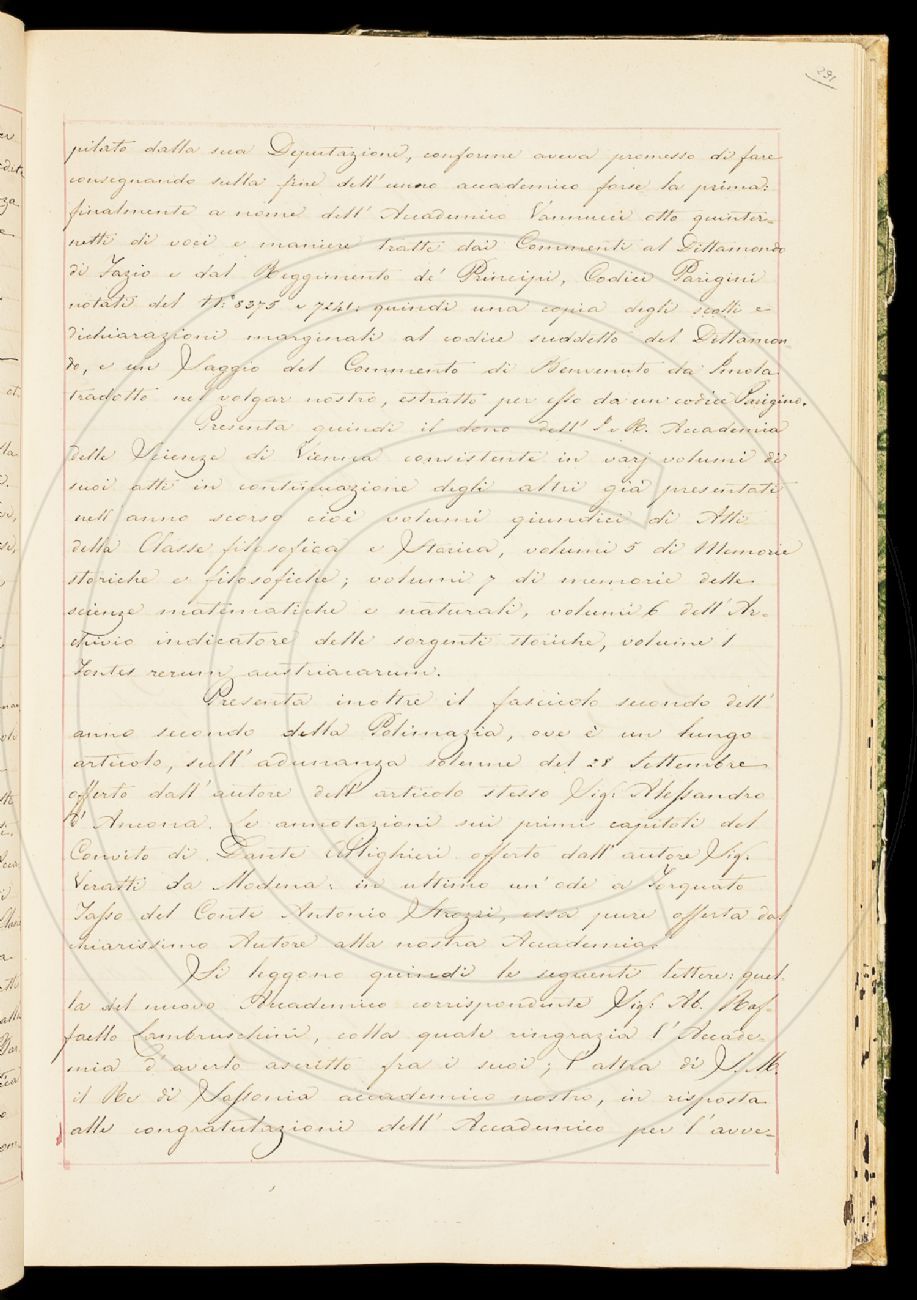 291
pilato dalla sua Deputazione, conforme aveva promesso di fare
consegnando sulla fine dell'anno accademico forse la prima:
finalmente a nome dell'Accademico Vannucci otto quinter-
netti di voci e maniere tratte dai Commenti al Dittamondo
di Fazio e dal Reggimento de' Principi, Codici Parigini
notati del N.° 8375 e 7241: quindi una copia degli scolii e
dichiarazioni marginali al codice suddetto del Dittamon-
do, e un Saggio del Commento di Benvenuto da Imola
tradotto nel volgar nostro, estratto per esso da un codice Parigino.
Presenta quindi il dono dell'I. e R. Accademia
delle Scienze di Vienna consistente in varj volumi di
suoi atti in continuazione degli altri già presentati
nell'anno scorso cioè volumi quindici di Atti
della Classe filosofica e Storica, volumi 5 di Memorie
storiche e filosofiche; volumi 7 di memorie delle
scienze matematiche e naturali, volumi 6 dell'Ar-
chivio indicatore delle sorgenti storiche, volume 1
Fontes rerum austriacarum.
Presenta inoltre il fascicolo secondo dell'
anno secondo della Polimazia, ove è un lungo
articolo, sull'adunanza solenne del 28 Settembre
offerto dall'autore dell'articolo stesso Sig: Alessandro
d'Ancona. Le annotazioni sui primi capitoli del
Convito di Dante Allighieri offerto dall'autore Sig.
Veratti da Modena: in ultimo un'ode a Torquato
Tasso del Conte Antonio Strozzi, essa pure offerta dal
chiarissimo Autore alla nostra Accademia.
Si leggono quindi le seguenti lettere: quel-
la del nuovo Accademico corrispondente Sig: Ab. Raf-
faello Lambruschini, colla quale ringrazia l'Accade-
mia d'averlo ascritto fra i suoi; l'altra di S. M.
il Re di Sassonia accademico nostro, in risposta
alle congratulazioni dell'Accademico per l'avve-